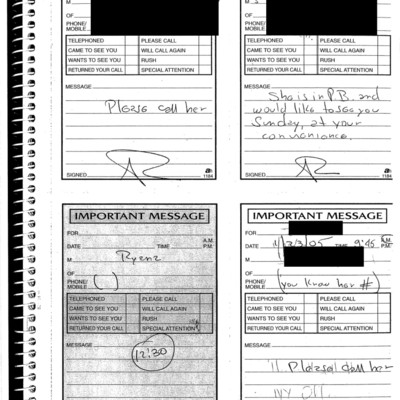 M
OF
PHONE/
MOBILE
TELEPHONED PLEASE CALL
CAME TO SEE YOU WILL CALL AGAIN
WANTS TO SEE YOU RUSH
RETURNED YOUR CALL SPECIAL ATTENTION
MESSAGE
Please call her
SIGNED
1184
M
OF
PHONE/
MOBILE
TELEPHONED PLEASE CALL
CAME TO SEE YOU WILL CALL AGAIN
WANTS TO SEE YOU RUSH
RETURNED YOUR CALL SPECIAL ATTENTION
MESSAGE
She is in P.B. and
would like to see you
Sunday, at your
convenience.
SIGNED
1184
IMPORTANT MESSAGE
FOR
DATE TIME A.M.
P.M.
M
OF
PHONE/
MOBILE ( )
TELEPHONED PLEASE CALL
CAME TO SEE YOU WILL CALL AGAIN
WANTS TO SEE YOU RUSH
RETURNED YOUR CALL SPECIAL ATTENTION
MESSAGE
12:30
IMPORTANT MESSAGE
FOR
DATE /05 TIME 9:45 A.M.
P.M.
M
OF
PHONE/
MOBILE (you know her #)
TELEPHONED PLEASE CALL
CAME TO SEE YOU WILL CALL AGAIN
WANTS TO SEE YOU RUSH
RETURNED YOUR CALL SPECIAL ATTENTION
MESSAGE
call her